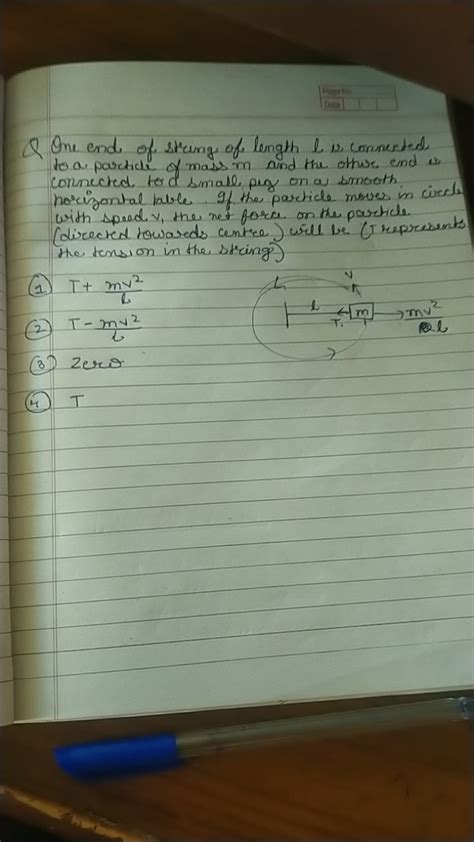 Page No.
Date
Q One end of string of length l is connected
to a particle of mass m and the other end is
connected to a small peg on a smooth
horizontal table. If the particle moves in circle
with speed v, the net force on the particle
(directed towards centre) will be (T represents
the tension in the string)
① T + mv²/l
② T - mv²/l
③ Zero
④ T
v
l
T
m
mv²
l